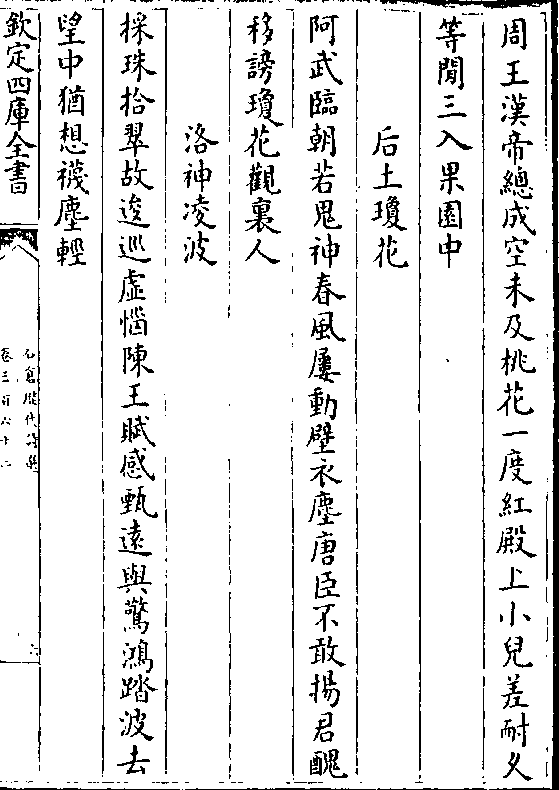 周王漢帝總成空未及桃花一度紅殿上小兒差耐久
等閒三入果園中
后土瓊花
阿武臨朝若鬼神春風屢動壁衣塵唐臣不敢揚君醜
移謗瓊花觀裏人
洛神凌波
採珠拾翠故逡巡虛惱陳王賦感甄遠與驚鴻踏波去
望中猶想襪塵輕
欽定四庫全書
石倉歷代詩選
卷三百六十二